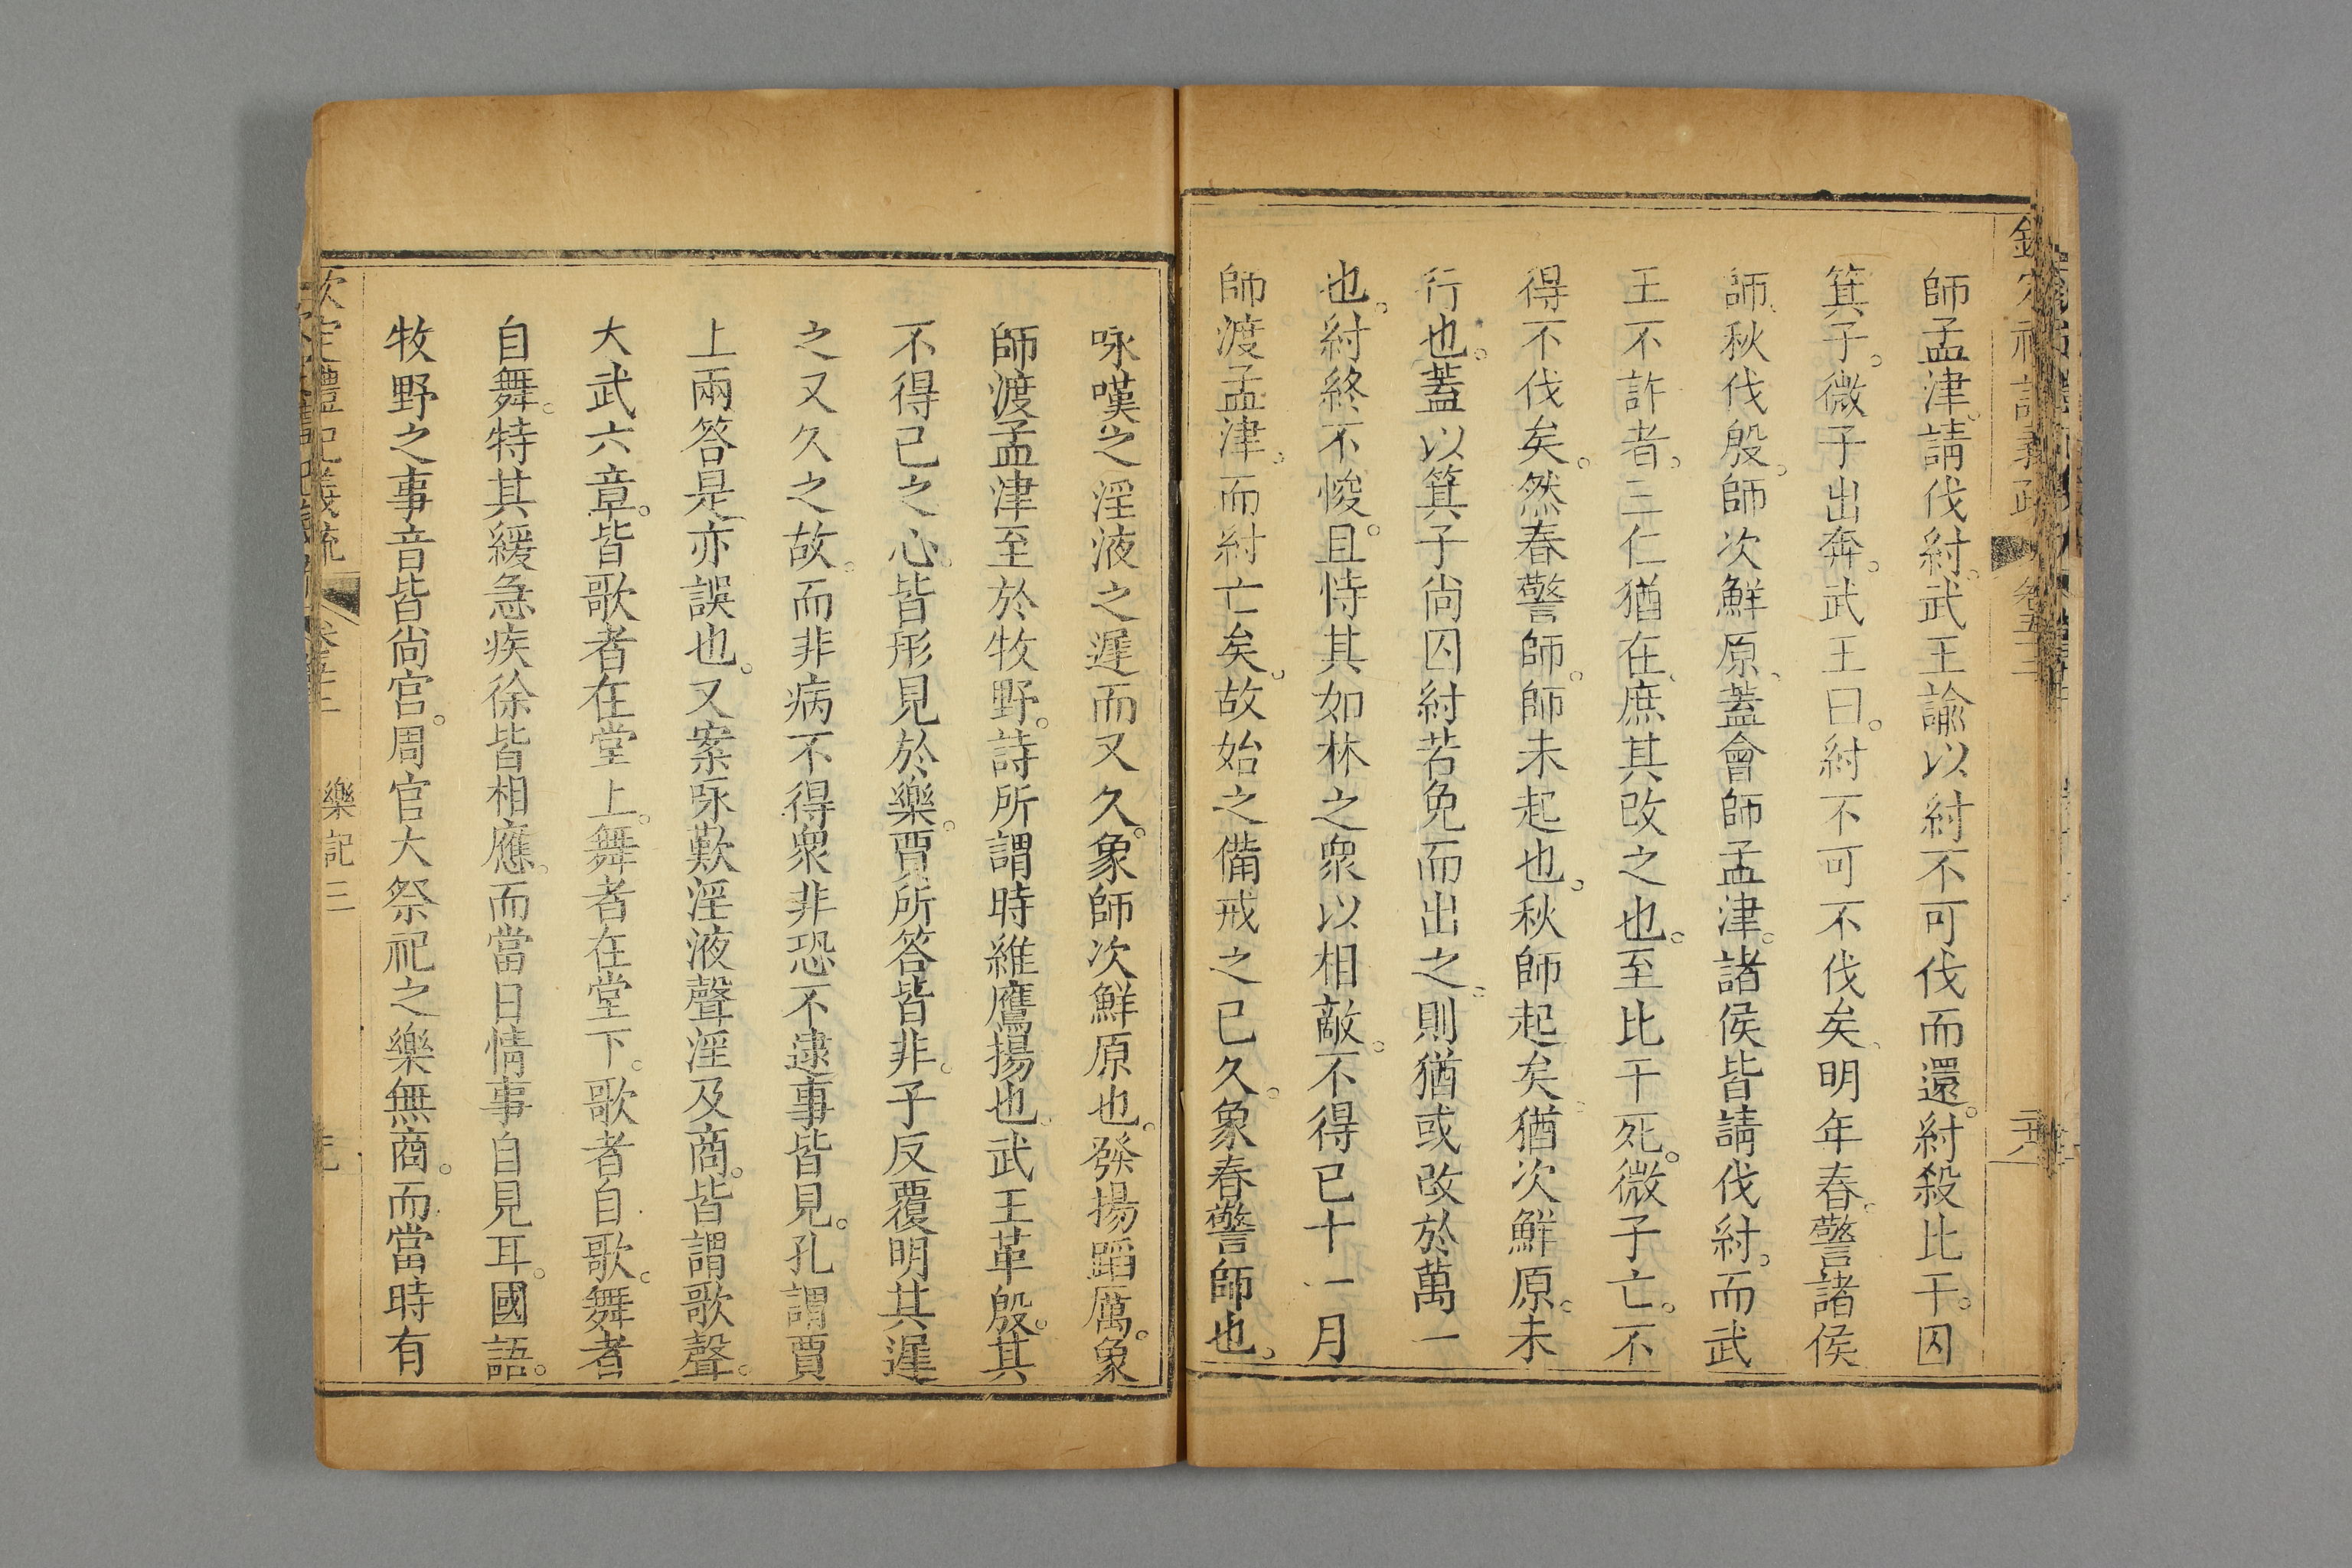 師孟津。請伐紂。武王諭以紂不可伐而還。紂殺比干。囚
箕子。微子出奔。武王曰。紂不可不伐矣、明年春。警諸侯
師、秋伐殷。師次鮮原、蓋會師孟津。諸侯皆請伐紂。而武
王不許者。三仁猶在、庶其改之也。至比干死。微子亡。不
得不伐矣。然春警師。師未起也。秋師起矣。猶次鮮原。未
行也。蓋以箕子尙囚紂若免而出之。則猶或改於萬一
也。紂終不悛。且恃其如林之衆以相敵。不得已十一月
師渡孟津。而紂亡矣。故始之備戒之已久。象春警師也。
咏嘆之淫液之遲而又久。象師次鮮原也。發揚蹈厲。象
師渡孟津至於牧野。詩所謂時維鷹揚也。武王革殷。其
不得已之心。皆形見於樂。賈所答皆非。子反覆明其遲
之又久之故。而非病不得衆非恐不逮事皆見。孔謂賈
上兩答是亦誤也。又案咏歎淫液聲淫及商。皆謂歌聲。
大武六章。皆歌者在堂上。舞者在堂下。歌者自歌。舞者
自舞。特其緩急疾徐皆相應。而當日情事自見耳。國語。
牧野之事音皆尙宮。周官大祭祀之樂無商。而當時有
樂記三